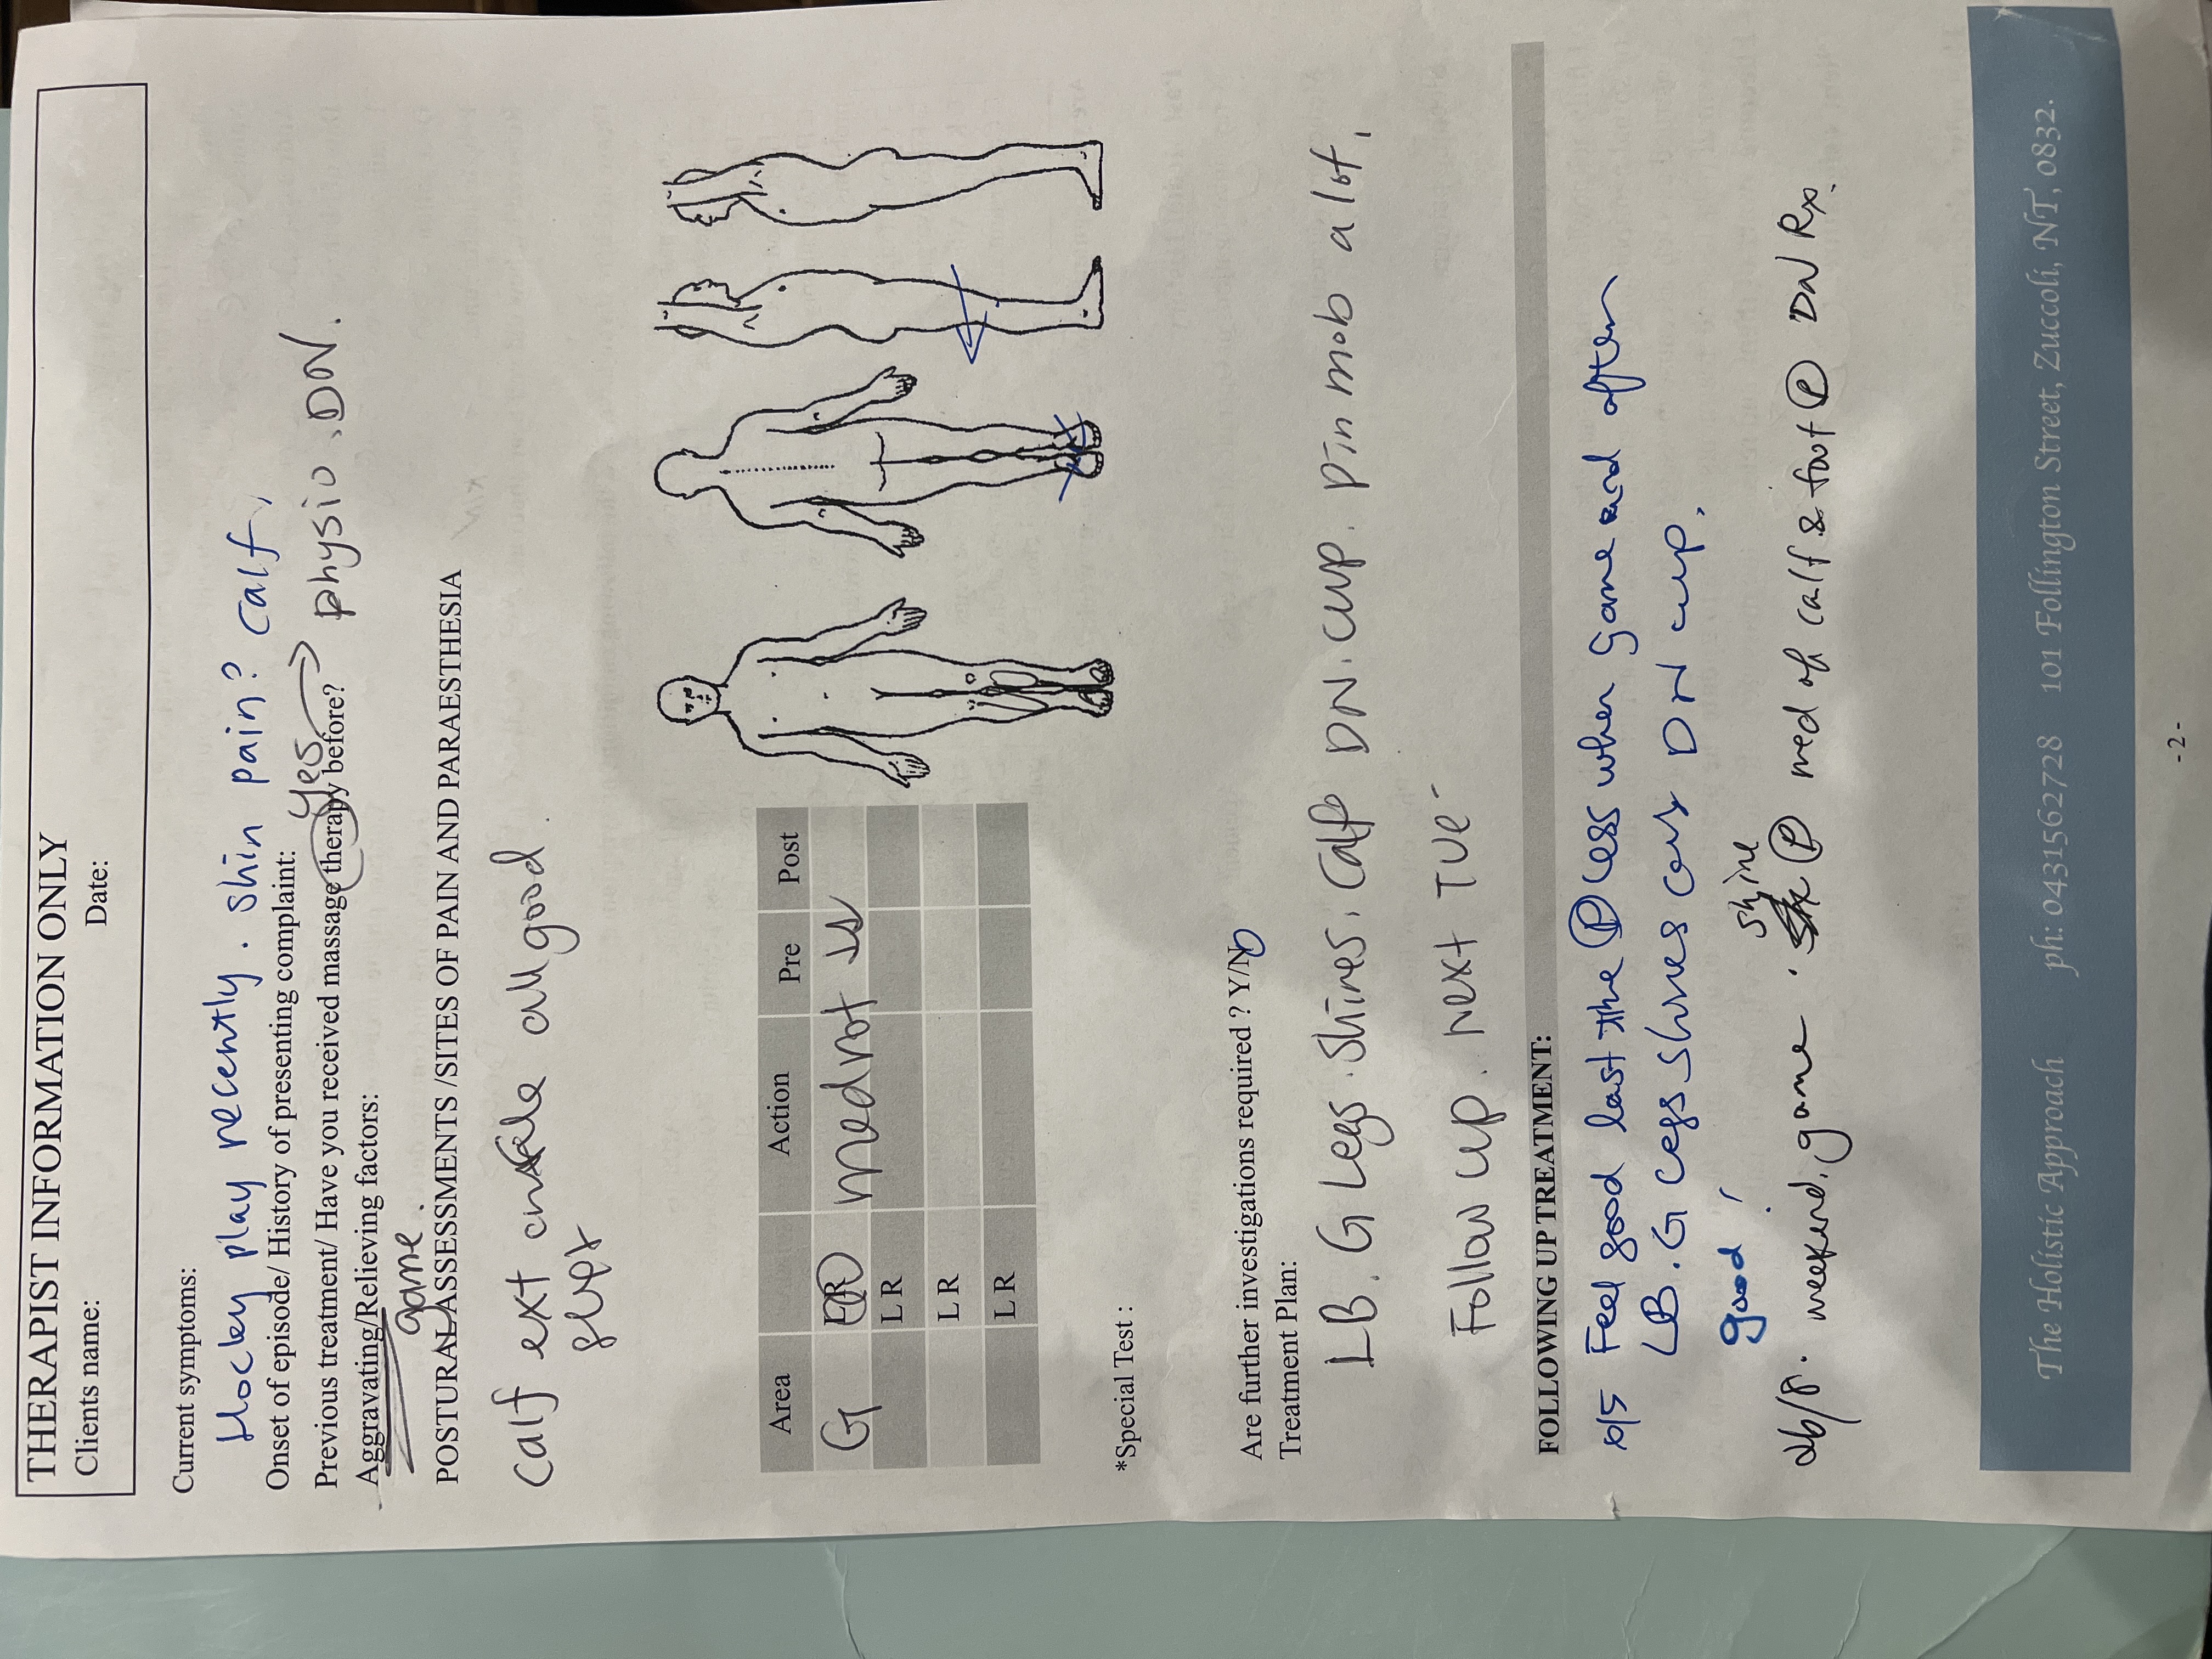 THERAPIST INFORMATION ONLY
Clients name: Date:
Current symptoms:
Hockey play recently. shin pain? calf,
Onset of episode/ History of presenting complaint: Yes
Previous treatment/ Have you received massage therapy before? physio. DN.
Aggravating/Relieving factors:
game.
POSTURAL ASSESSMENTS /SITES OF PAIN AND PARAESTHESIA
Calf ext all good
Area Action Pre Post
G L R med rot
L R
L R
L R
*Special Test :
Are further investigations required ? Y/N
Treatment Plan:
LB. G Legs. Shines. Calf DN. cup. pin mob a lot.
Follow up. next Tue
FOLLOWING UP TREATMENT:
Feel good last the P less when game and often
LB. G Legs shines DN cup.
good!
shine
weekend, game. P med of calf & foot P DN Rx.
The Holistic Approach ph: 0431562728 101 Follington Street, Zuccoli, NT, 0832.
- 2 -